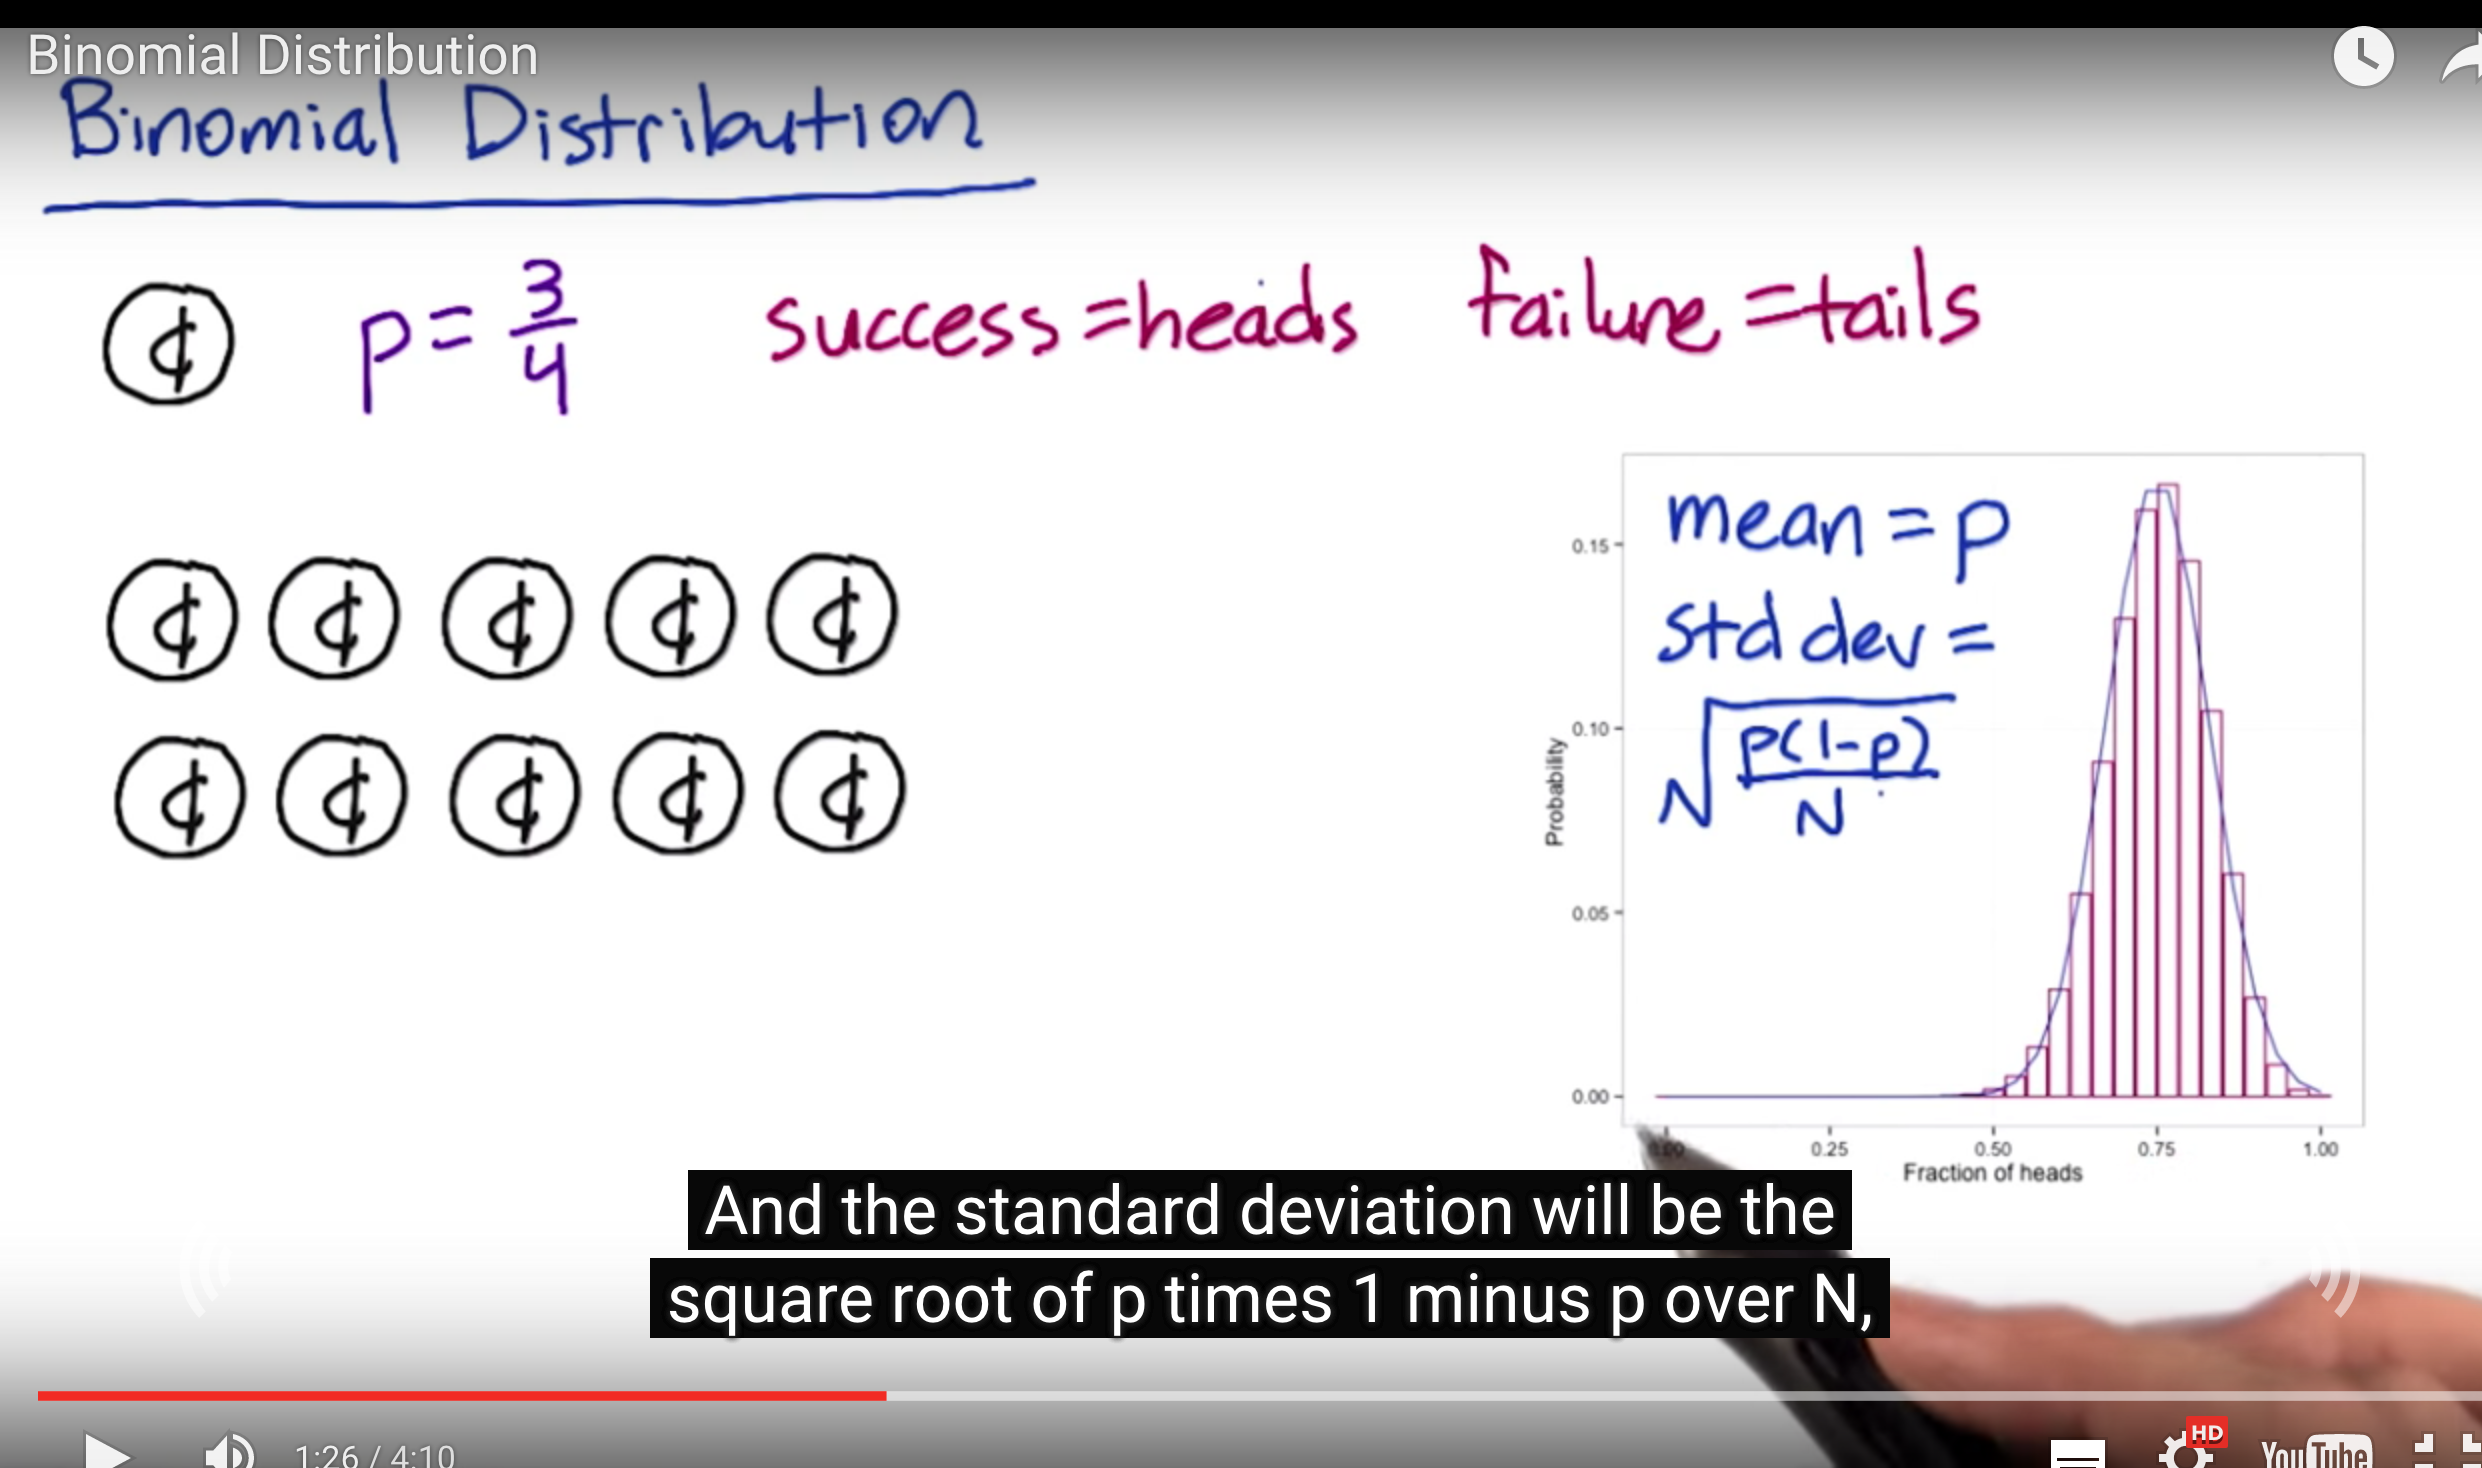 Binomial Distribution
Binomial Distribution
¢ p = 3/4 success = heads failure = tails
¢ ¢ ¢ ¢ ¢
¢ ¢ ¢ ¢ ¢
mean = p
std dev =
√(p(1-p)/N)
0.15
0.10
0.05
0.00
Probability
0.00 0.25 0.50 0.75 1.00
Fraction of heads
And the standard deviation will be the
square root of p times 1 minus p over N,
1:26 / 4:10
HD
YouTube